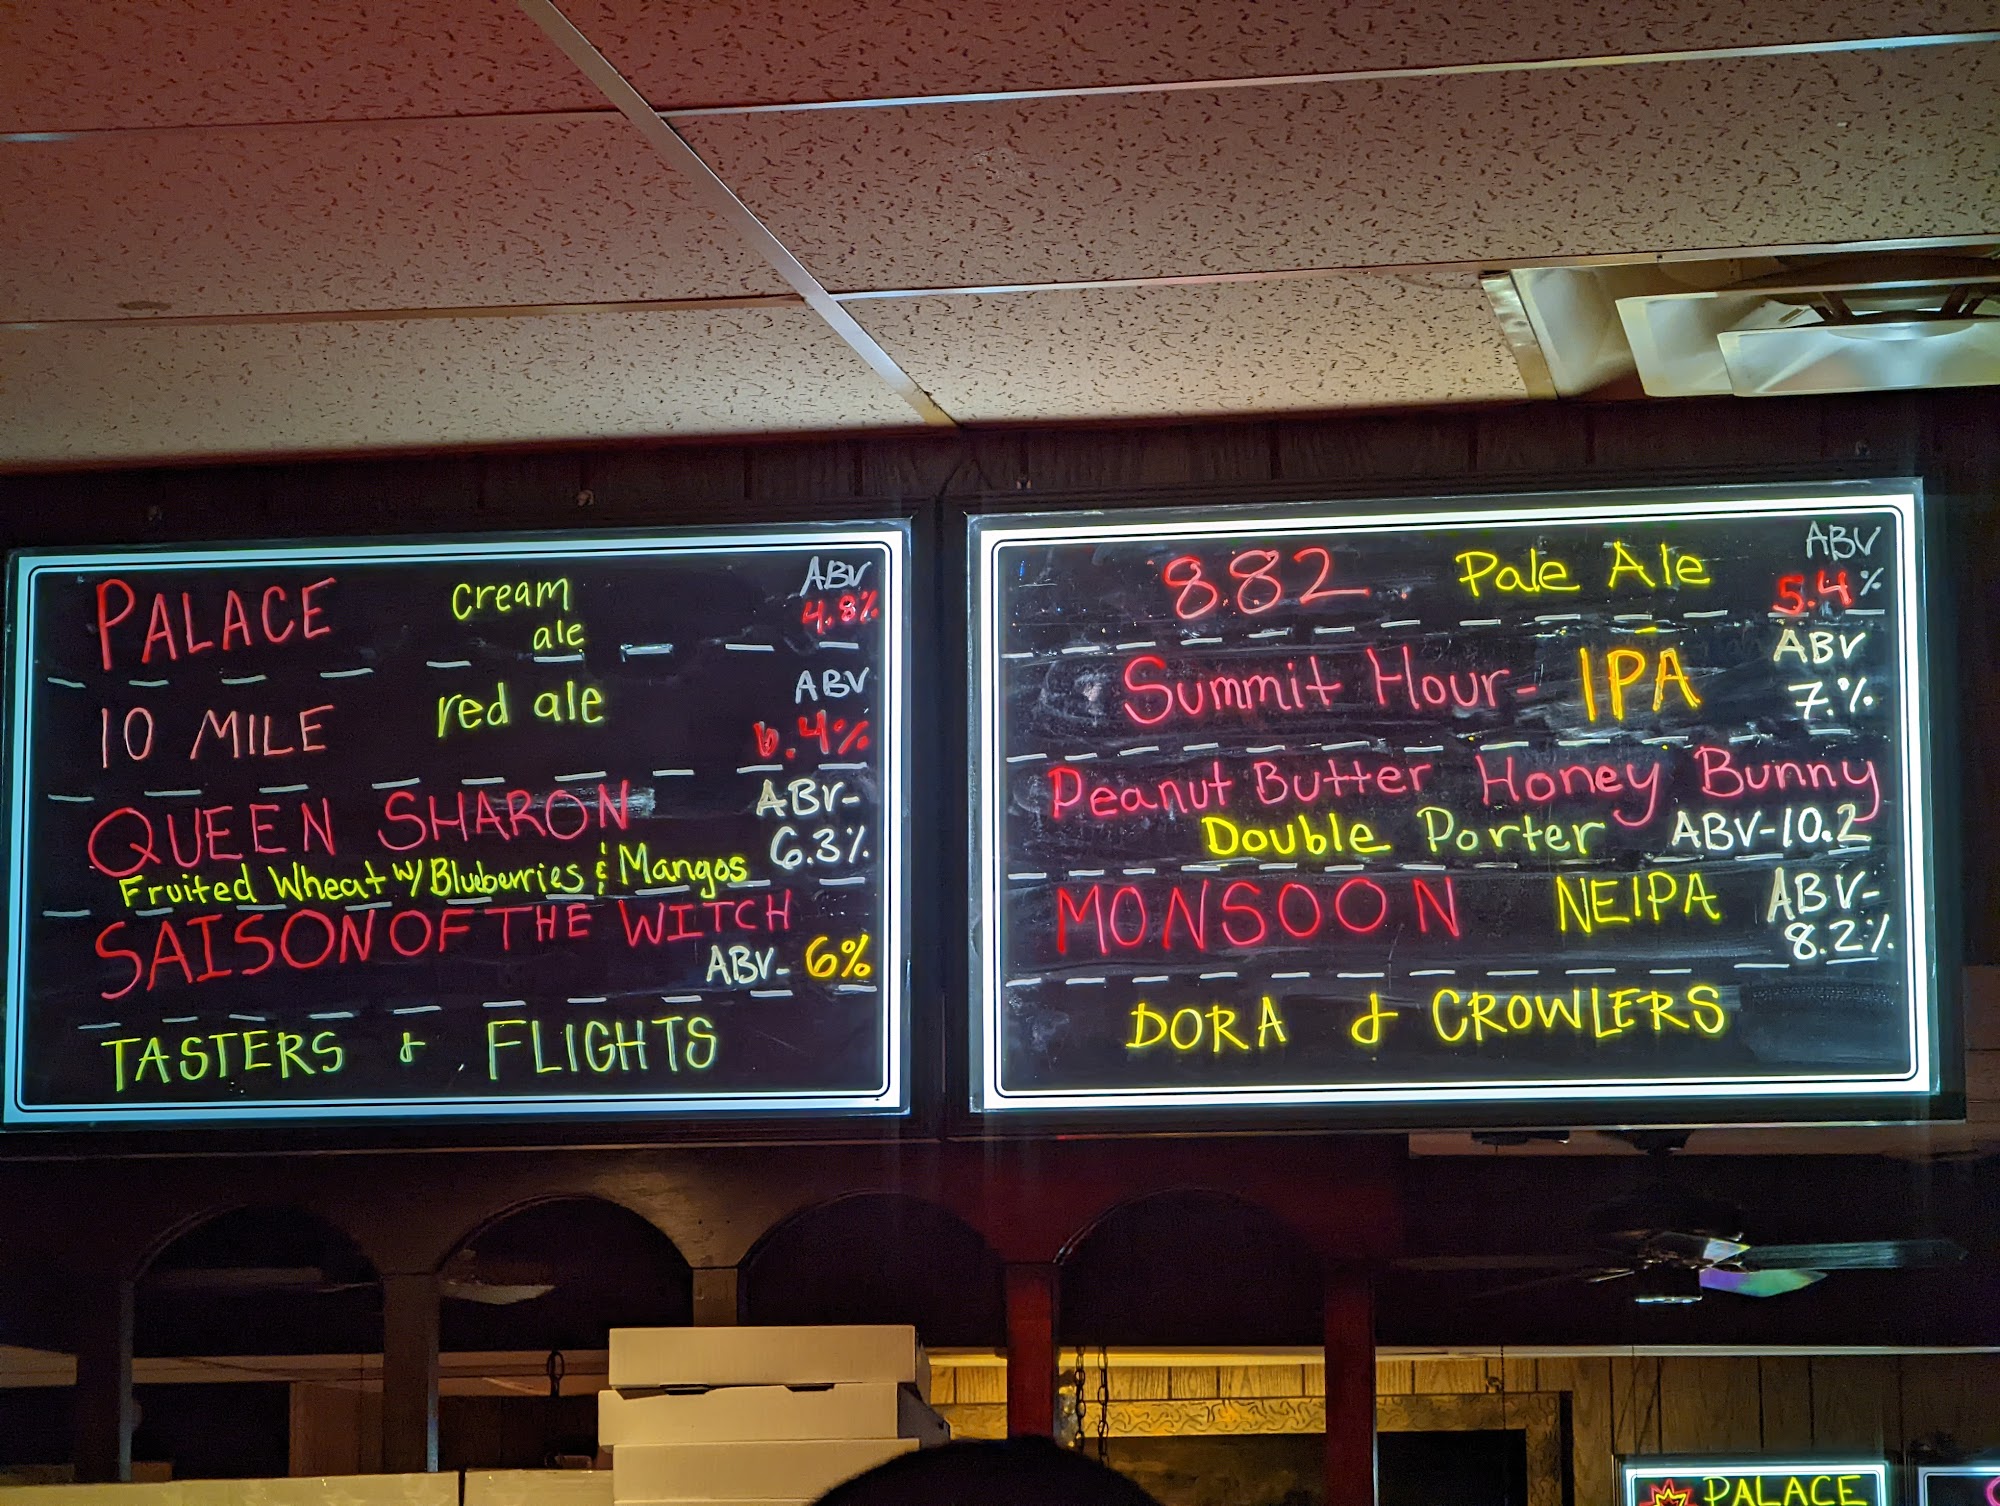 PALACE cream ale ABV 4.8%
10 MILE red ale ABV 6.4%
QUEEN SHARON ABV- 6.3%
Fruited Wheat w/ Blueberries & Mangos
SAISON OF THE WITCH
ABV- 6%
TASTERS & FLIGHTS
882 Pale Ale ABV 5.4%
Summit Hour- IPA ABV 7.%
Peanut Butter Honey Bunny
Double Porter ABV-10.2
MONSOON NEIPA ABV- 8.2%
DORA & CROWLERS
PALACE